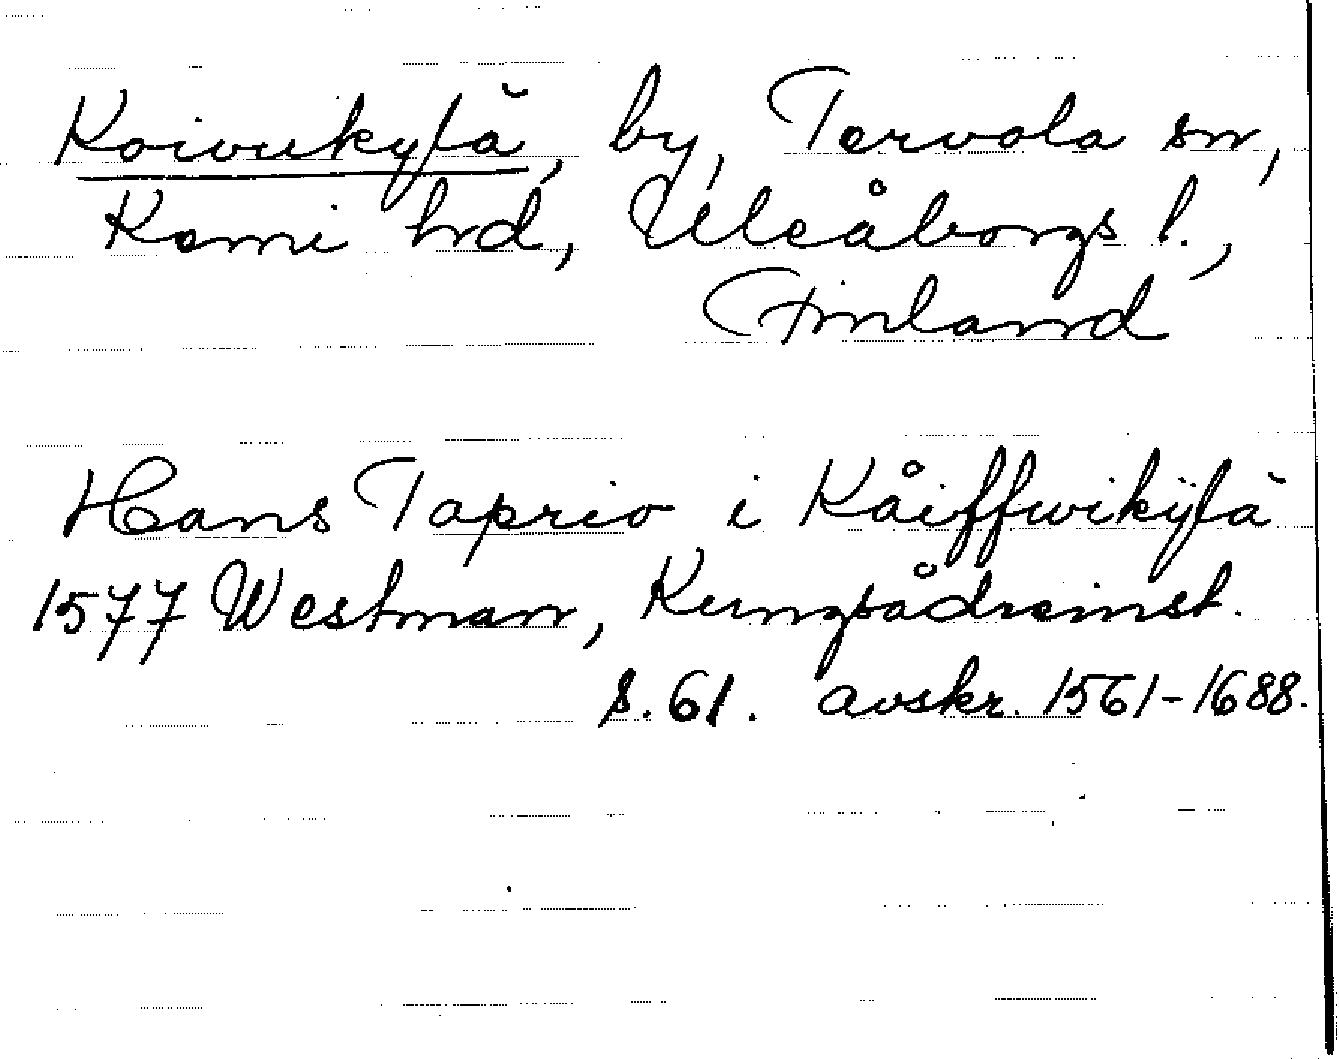 Koivukylä, by, Tervola sn,
Kemi hrd, Uleåborgs l.,
Finland
Hans Taprio i Kåiffwikÿlä
1577 Westman, Kungsådreinst.
s. 61. avskr. 1561-1688.